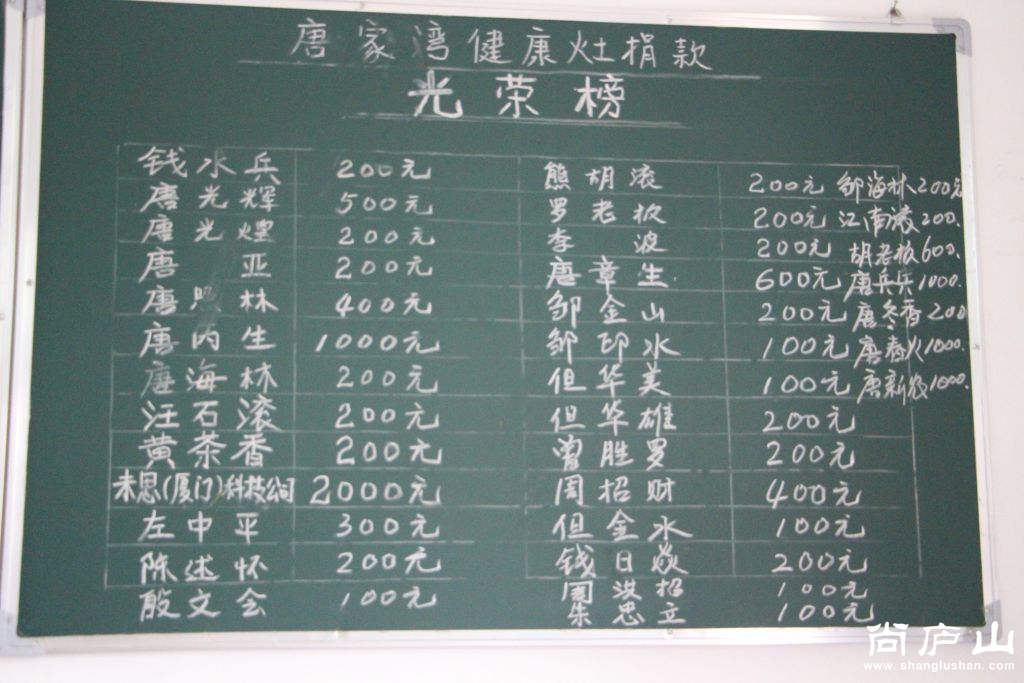 唐家湾健康灶捐款
光荣榜
钱水兵 200元
唐光辉 500元
唐光煌 200元
唐亚 200元
唐照林 400元
唐内生 1000元
唐海林 200元
汪石滚 200元
黄茶香 200元
未思(厦门)科技公司 2000元
左中平 300元
陈述怀 200元
殷文会 100元
熊胡滚 200元 邹海林200元
罗老板 200元 江南滚200.
李波 200元 胡老板600.
唐章生 600元 唐兵兵1000.
邹金山 200元 唐冬香200
邹印水 100元 唐春火1000.
但华美 100元 唐新农1000.
但华雄 200元
曾胜罗 200元
周招财 400元
但金水 100元
钱日焱 200元
周洪招 100元
朱忠立 100元
尚庐山
www.shanglushan.com